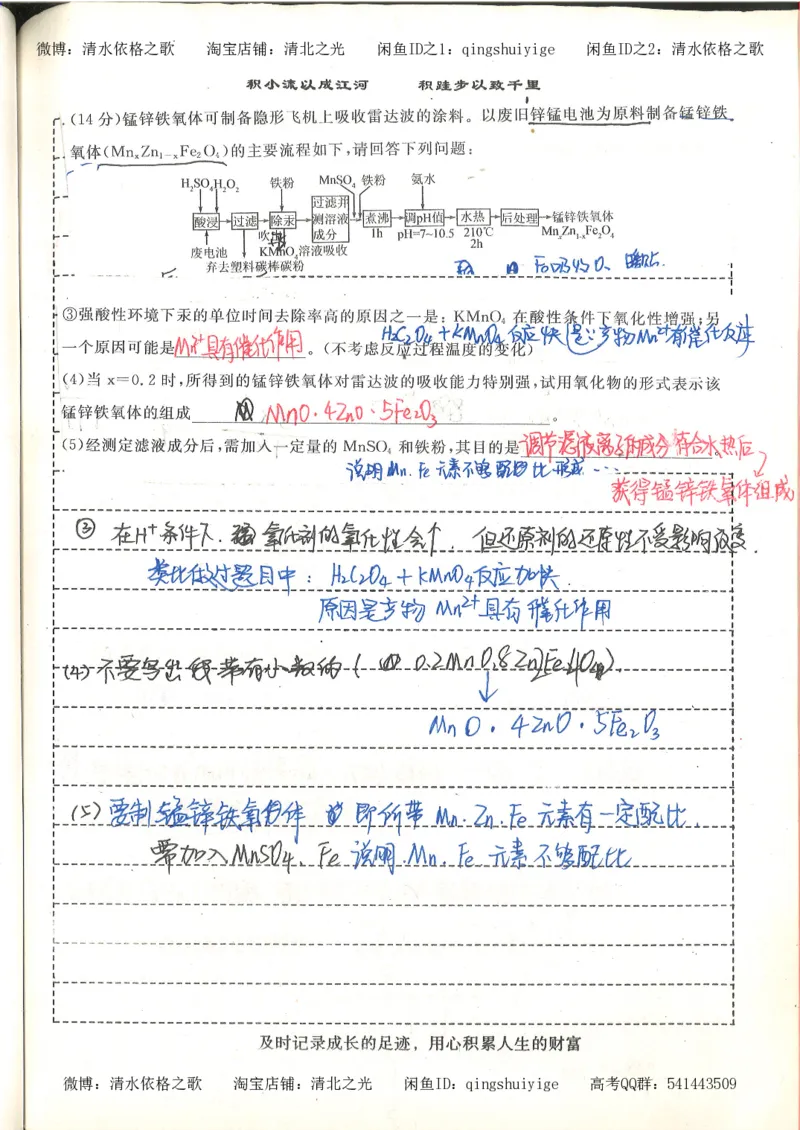 微博：清水依格之歌 淘宝店铺：清北之光 闲鱼ID之1：qingshuiyige 闲鱼ID之2：清水依格之歌
积小流以成江河 积跬步以致千里
(14分)锰锌铁氧体可制备隐形飞机上吸收雷达波的涂料。以废旧锌锰电池为原料制备锰锌铁
氧体(MnₓZn₁₋ₓFe₂O₄)的主要流程如下,请回答下列问题：
H₂SO₄H₂O₂ 铁粉 MnSO₄ 铁粉 氨水
酸浸 过滤 除汞 过滤并测溶液成分 煮沸 调pH值 水热 后处理 锰锌铁氧体
吹 1h pH=7~10.5 210℃ 2h MnₓZn₁₋ₓFe₂O₄
废电池 KMnO₄溶液吸收
弃去塑料碳棒碳粉
③强酸性环境下汞的单位时间去除率高的原因之一是：KMnO₄在酸性条件下氧化性增强；另
H₂C₂O₄+KMnO₄反应快是：产物Mn²⁺有催化反应
一个原因可能是Mn²⁺具有催化作用。(不考虑反应过程温度的变化)
(4)当 x=0.2时,所得到的锰锌铁氧体对雷达波的吸收能力特别强,试用氧化物的形式表示该
锰锌铁氧体的组成 MnO·4ZnO·5Fe₂O₃ 。
(5)经测定滤液成分后,需加入一定量的 MnSO₄ 和铁粉,其目的是调节滤液离子的成分符合水热后
说明Mn.Fe元素不够配比形成…
获得锰锌铁氧体组成
③ 在H⁺条件下.强氧化剂的氧化性会↑.但还原剂的还原性不受影响改变.
类比做过题目中：H₂C₂O₄+KMnO₄反应加快.
原因是产物Mn²⁺具有催化作用
(4)不要写出带有小数的(0.2MnO.8Zn2Fe4O).
↓
MnO·4ZnO·5Fe₂O₃
(5)要制锰锌铁氧体 即所带Mn.Zn.Fe元素有一定配比.
需加入MnSO₄、Fe说明.Mn.Fe元素不够配比
及时记录成长的足迹，用心积累人生的财富
微博：清水依格之歌 淘宝店铺：清北之光 闲鱼ID：qingshuiyige 高考QQ群：541443509